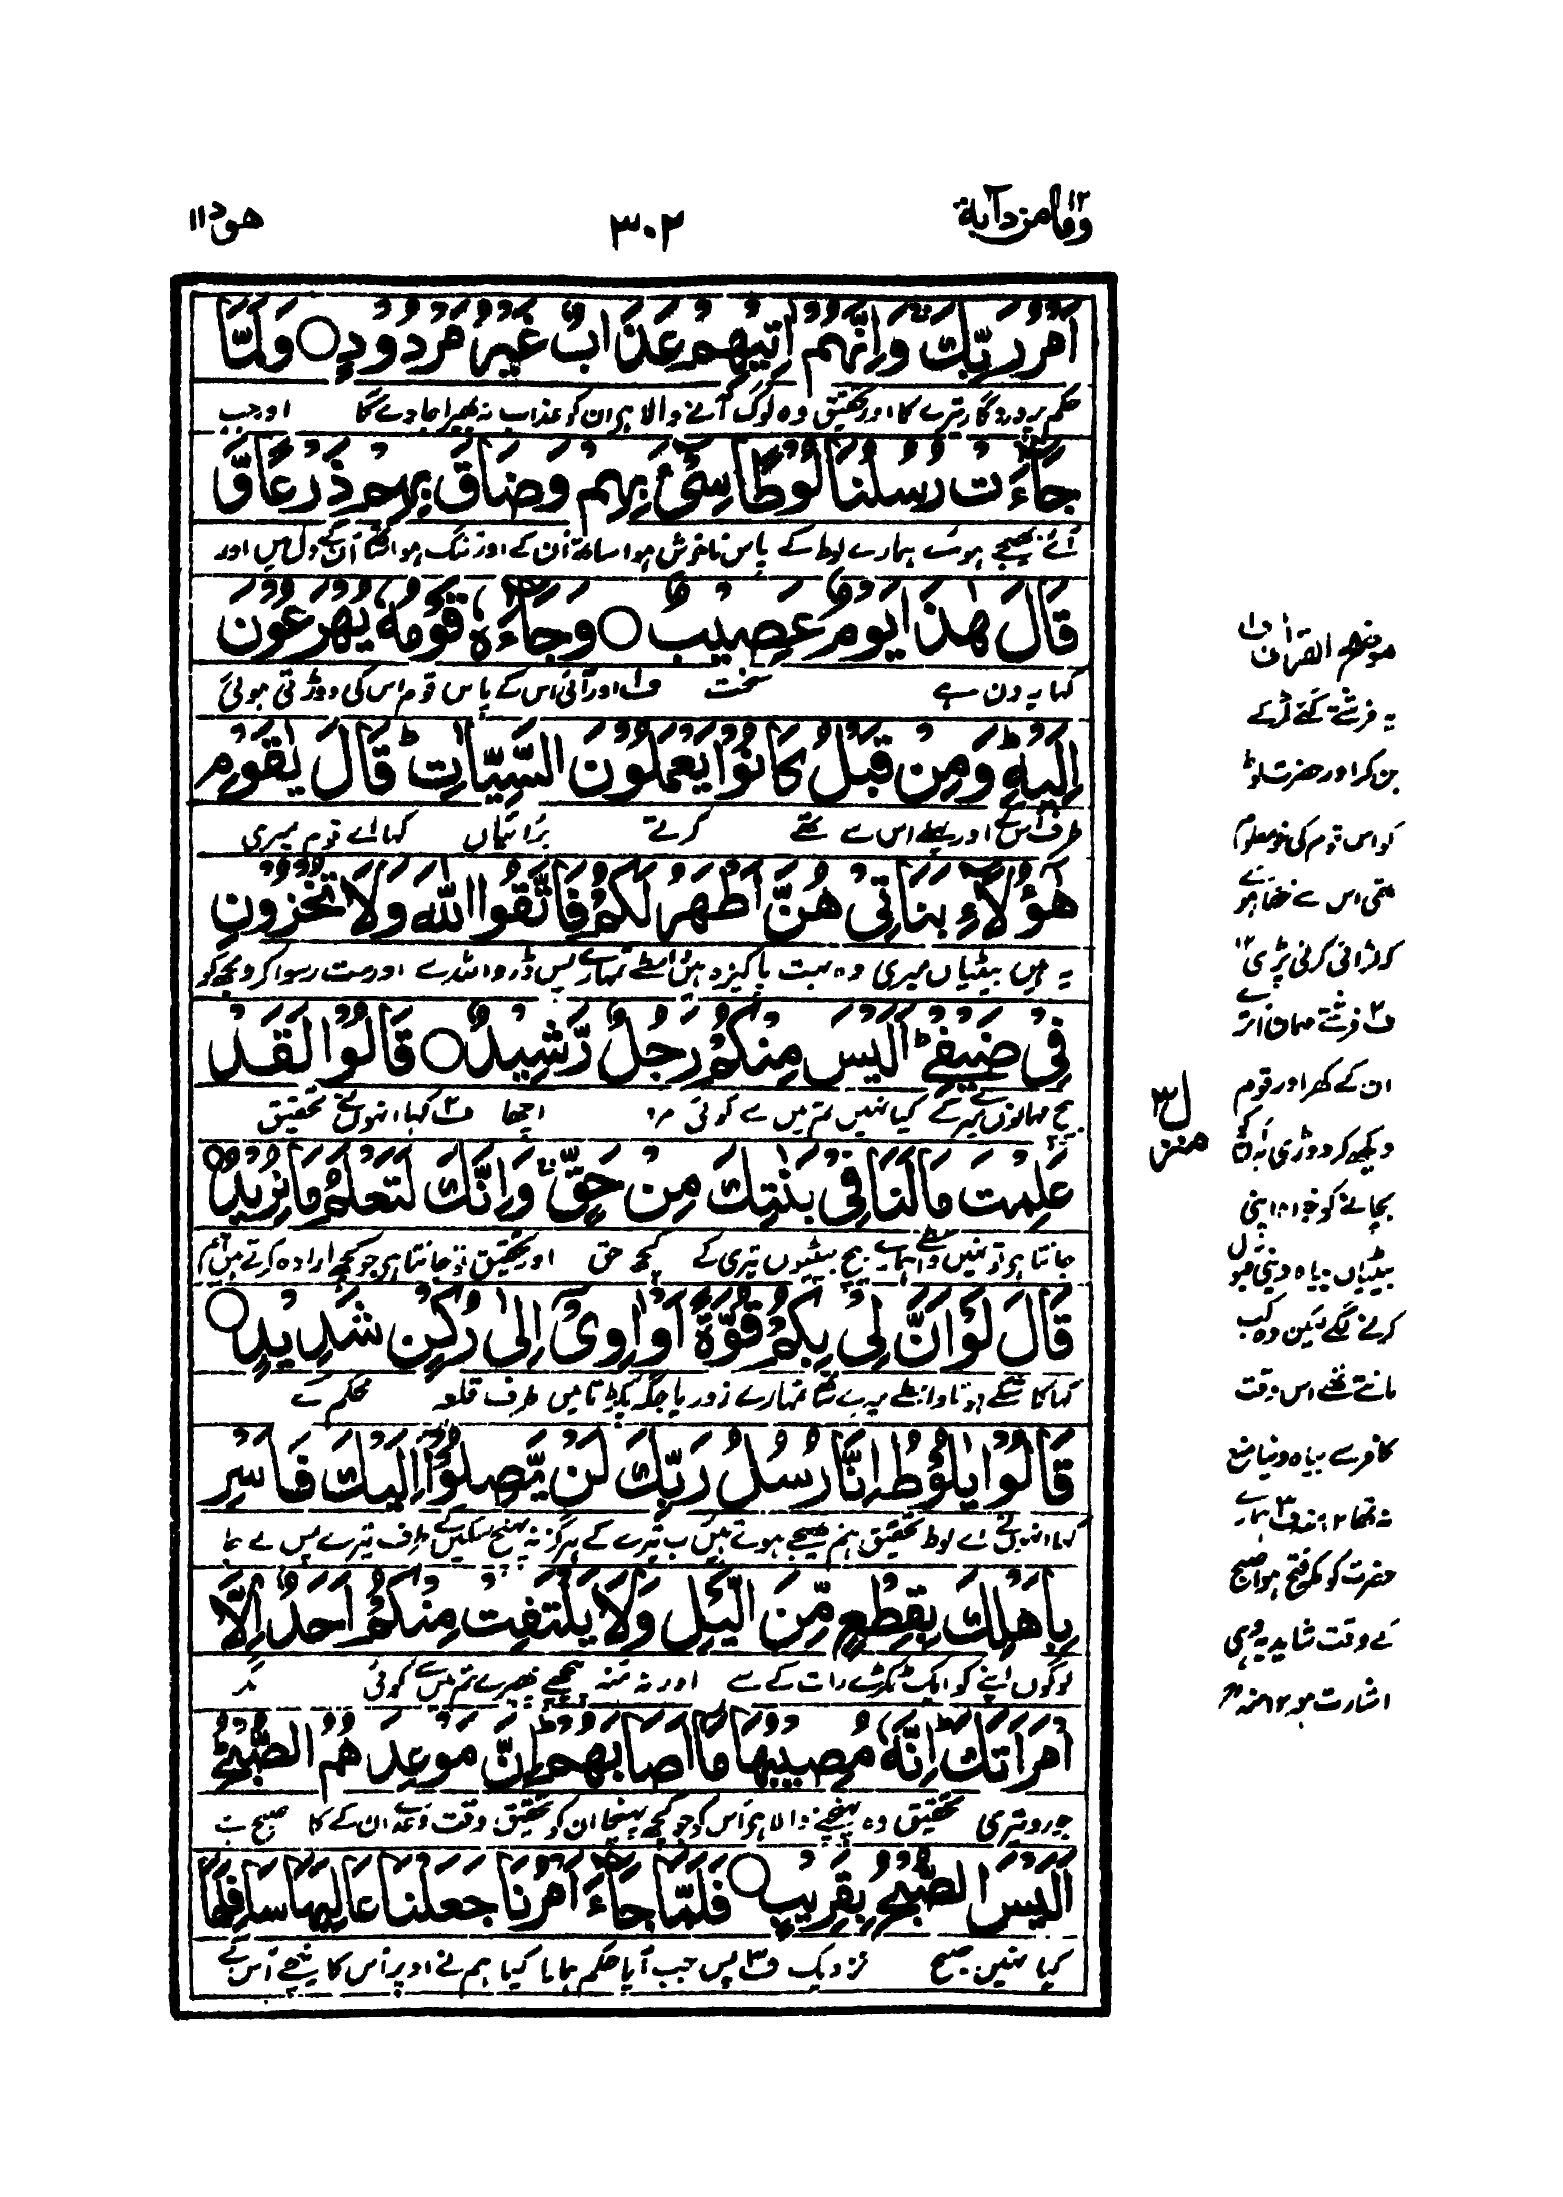 وما من دآبة ١٢
٣٠٢
هود ١١
اَمْرُ رَبِّكَ وَاِنَّهُمْ اٰتِيْهِمْ عَذَابٌ غَيْرُ مَرْدُوْدٍ ○ وَلَمَّا
حکم پروردگار تیرے کا اور تحقیق وہ لوگ آنے والا ہی ان کو عذاب نہ پھیرا جاوے گا اور جب
جَآءَتْ رُسُلُنَا لُوْطًا سِيْٓءَ بِهِمْ وَضَاقَ بِهِمْ ذَرْعًا وَّ
آئے بھیجے ہوئے ہمارے لوط کے پاس ناخوش ہوا ساتھ اُن کے اور تنگ ہوا ساتھ اُن کے دل میں اور
قَالَ هٰذَا يَوْمٌ عَصِيْبٌ ○ وَجَآءَهٗ قَوْمُهٗ يُهْرَعُوْنَ
کہا یہ دن ہے سخت ف١ اور آئی اس کے پاس قوم اس کی دوڑتی ہوئی
اِلَيْهِ ؕ وَمِنْ قَبْلُ كَانُوْا يَعْمَلُوْنَ السَّيِّاٰتِ ؕ قَالَ يٰقَوْمِ
طرف اس کے اور پہلے اس سے تھے کرتے برائیاں کہا اے قوم میری
هٰٓؤُلَآءِ بَنَاتِيْ هُنَّ اَطْهَرُ لَكُمْ فَاتَّقُوا اللّٰهَ وَلَا تُخْزُوْنِ
یہ ہیں بیٹیاں میری وہ بہت پاکیزہ ہیں واسطے تمہارے پس ڈرو اللہ سے اور مت رسوا کرو مجھ کو
فِيْ ضَيْفِيْ ؕ اَلَيْسَ مِنْكُمْ رَجُلٌ رَّشِيْدٌ ○ قَالُوْا لَقَدْ
بیچ مہمانوں میرے کے کیا نہیں تم میں سے کوئی مرد اچھا ف٢ کہا انہوں نے تحقیق
عَلِمْتَ مَا لَنَا فِيْ بَنٰتِكَ مِنْ حَقٍّ ۚ وَاِنَّكَ لَتَعْلَمُ مَا نُرِيْدُ ○
جانتا ہی تو نہیں واسطے ہمارے بیچ بیٹیوں تیری کے کچھ حق اور تحقیق تو جانتا ہی جو کچھ ارادہ کرتے ہیں ہم
قَالَ لَوْ اَنَّ لِيْ بِكُمْ قُوَّةً اَوْ اٰوِيْٓ اِلٰى رُكْنٍ شَدِيْدٍ ○
کہا کاشکے ہوتا واسطے میرے ساتھ تمہارے زور یا جگہ پکڑتا میں طرف قلعہ محکم کے
قَالُوْا يٰلُوْطُ اِنَّا رُسُلُ رَبِّكَ لَنْ يَّصِلُوْٓا اِلَيْكَ فَاَسْرِ
کہا انہوں نے اے لوط تحقیق ہم بھیجے ہوئے ہیں رب تیرے کے ہرگز نہ پہنچ سکیں گے طرف تیرے پس لے جا
بِاَهْلِكَ بِقِطْعٍ مِّنَ الَّيْلِ وَلَا يَلْتَفِتْ مِنْكُمْ اَحَدٌ اِلَّا
لوگوں اپنے کو ایک ٹکڑے رات کے سے اور نہ منہ پیچھے پھیرے تم میں سے کوئی مگر
امْرَاَتَكَ ؕ اِنَّهٗ مُصِيْبُهَا مَآ اَصَابَهُمْ ؕ اِنَّ مَوْعِدَهُمُ الصُّبْحُ ؕ
جورو تیری تحقیق وہ پہنچنے والا ہی اُس کو جو کچھ پہنچا ان کو تحقیق وقت وعدہ ان کے کا صبح ہے
اَلَيْسَ الصُّبْحُ بِقَرِيْبٍ ○ فَلَمَّا جَآءَ اَمْرُنَا جَعَلْنَا عَالِيَهَا سَافِلَهَا
کیا نہیں صبح نزدیک ف٣ پس جب آیا حکم ہمارا کیا ہم نے اوپر اُس کا نیچے اُس کے
موضح القرآن ف١
یہ فرشتے تھے لڑکے
بن کر اور حضرت لوط
کو اس قوم کی خو معلوم
تھی اس سے خفا ہوئے
کہ لڑائی کرنی پڑی ١٢
ف٢ فرشتے مہمان اترے
ان کے گھر اور قوم
دیکھ کر دوڑی یہ ان کے
بچانے کو
بیٹیاں بیاہ دینی قبول
کرنے لگے لیکن وہ کب
مانتے تھے اس وقت
کافر سے بیاہ دنیا منع
نہ تھا ١٢ منہ ف٣ ہمارے
حضرت کو مکہ فتح ہوا صبح
کے وقت شاید یہ وہی
اشارت ہو ١٢ منہ رح
منزل ٣